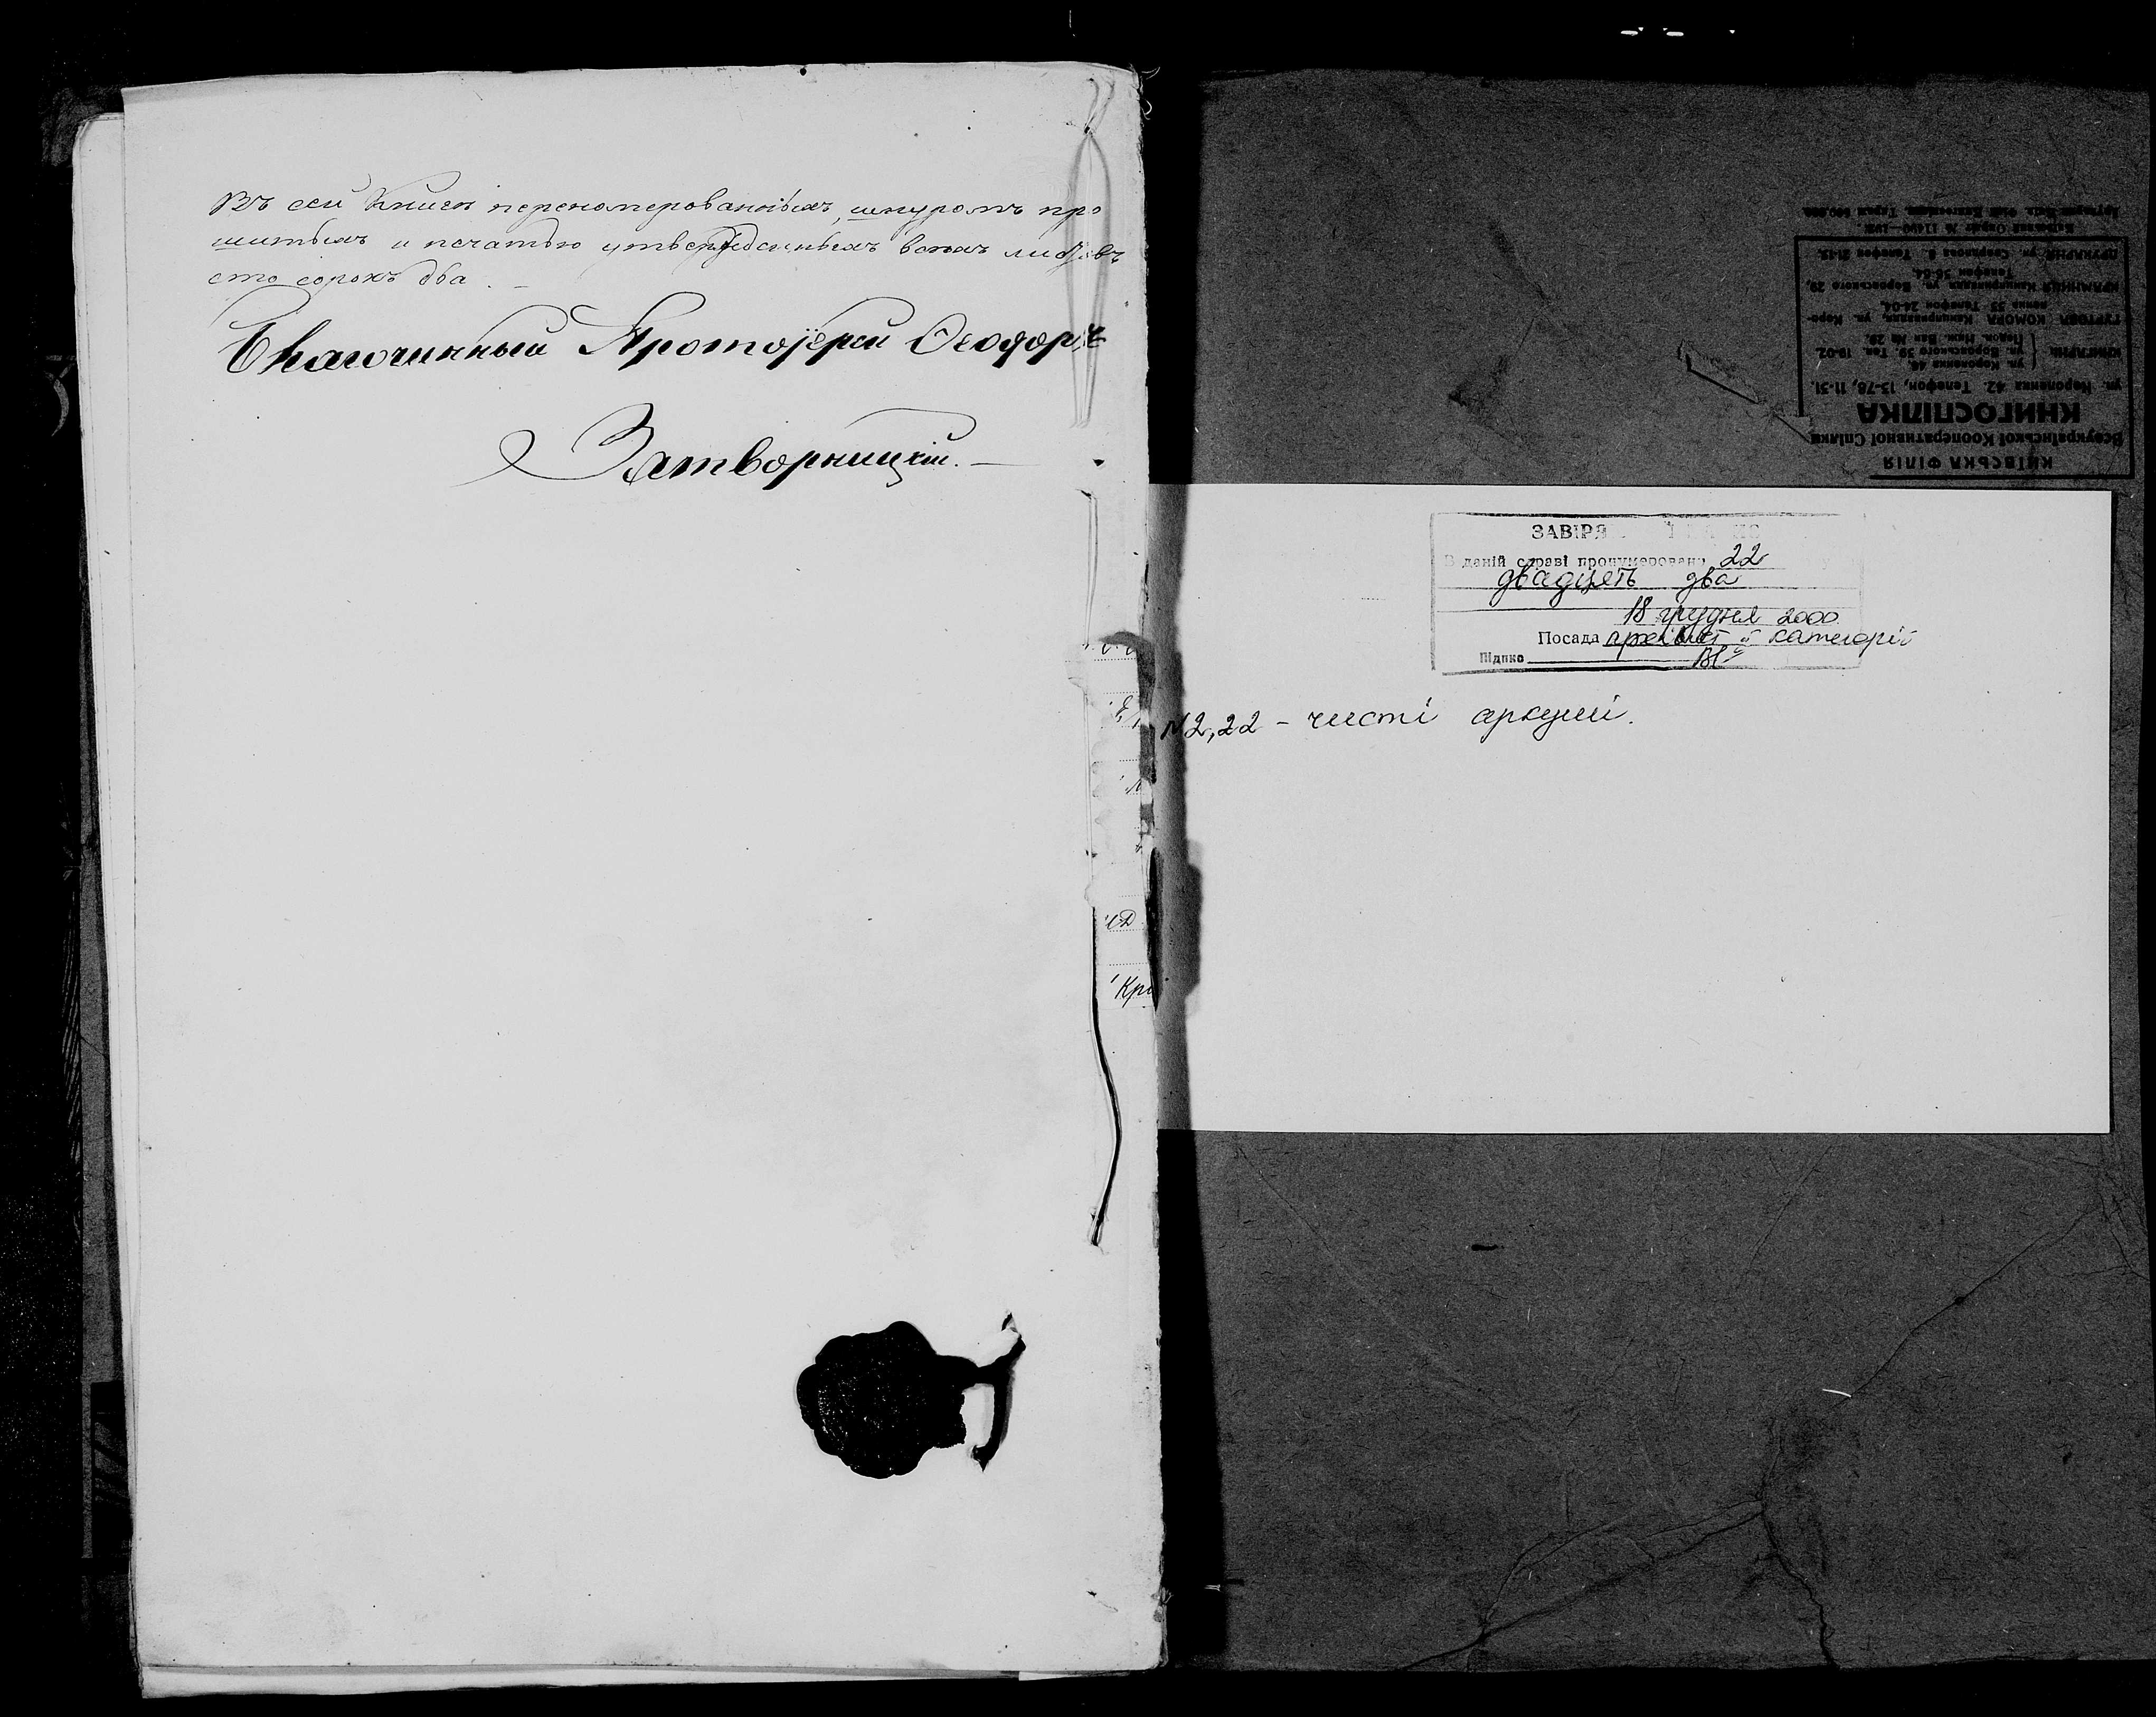 Въ сей Книгѣ перенумерованныхъ, шнуромъ про
шитыхъ и печатью утвержденныхъ всѣхъ листовъ
сто сорокъ два.
Благочинный Протоіерей Ѳеодоръ
Затворницкій.
Кра
ЗАВІРЯ
В даній справі пронумеровано 22
двадцять два
18 грудня 2000
Посада архівіст категорії
Підпис
№ 2, 22 - чисті аркуші.
КИЇВСЬКА ФІЛІЯ
Всеукраїнської Кооперативної Спілки
КНИГОСПІЛКА
ул. Короленка 42. Телефон, 13-78, 11-31.
КНИГАРНІ: ул. Короленка 46
ул. Воровського 39. Тел. 19-02.
Педон. Нижн. Вал № 29.
ГУРТОВА КОМОРА Канцприладдя, ул. Коро-
ленка 33 Телефон 24-04.
КРАМНИЦЯ Канцприладдя ул. Воровського 29,
Телефон 36-04.
ДРУКАРНЯ ул. Скорупова 6. Телефон 21-15.